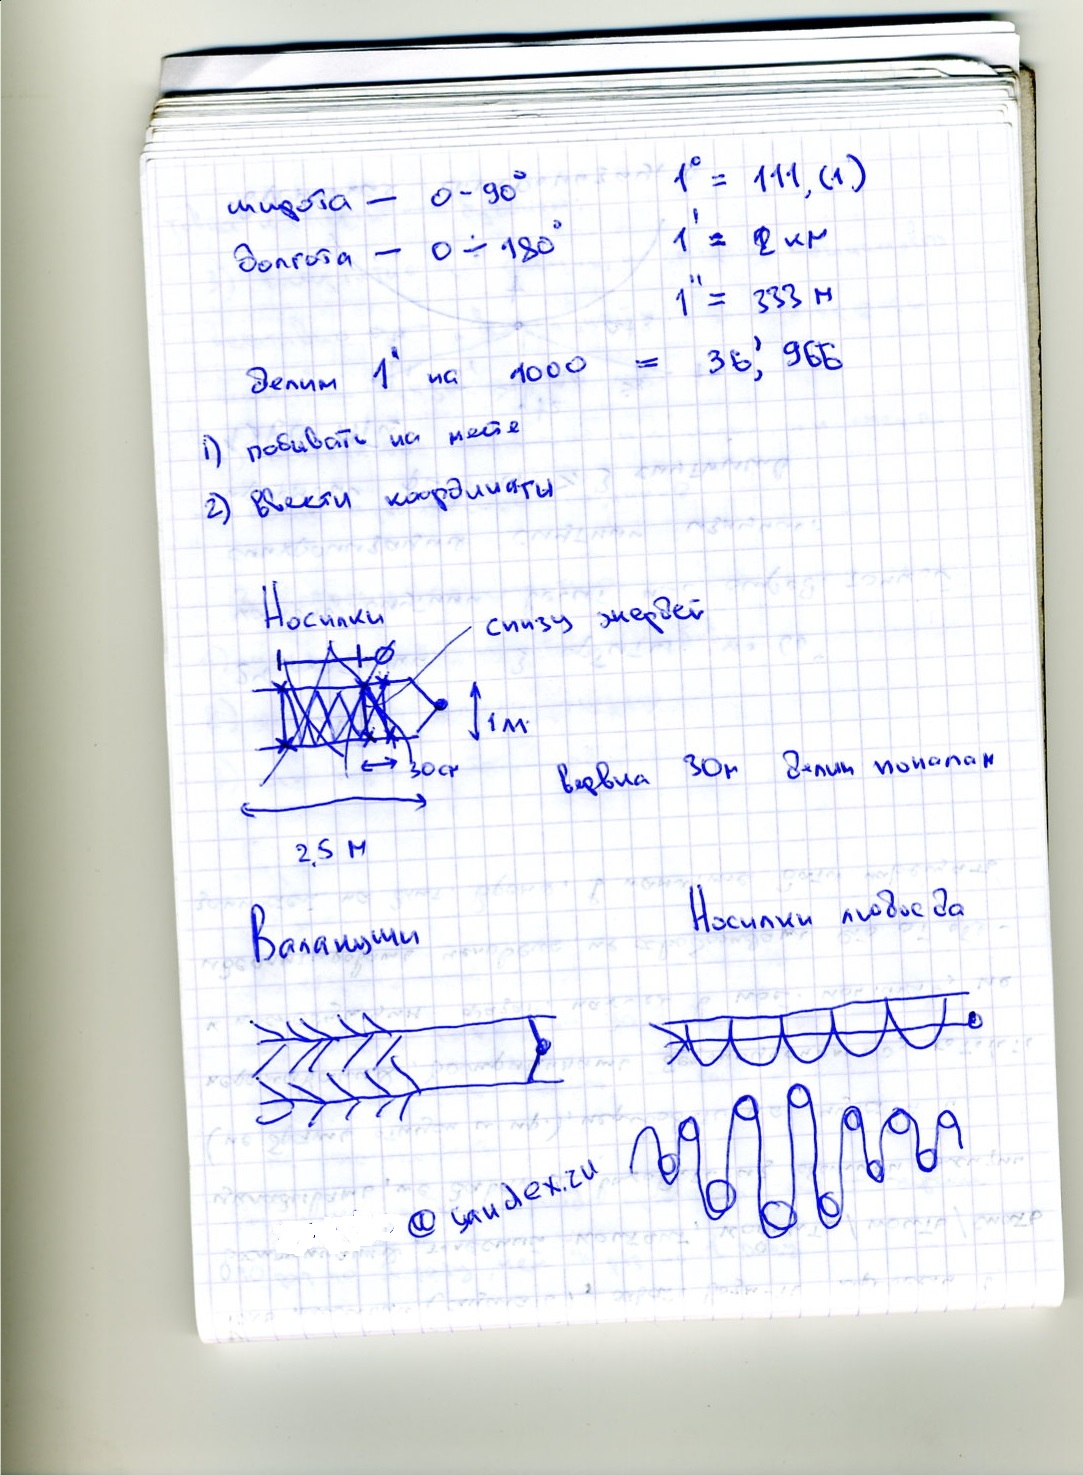 широта — 0-90° 1° = 111,(1)
долгота — 0 ÷ 180° 1' = 2 км
1'' = 333 м
делим 1' на 1000 = 36', 966
1) побывать на месте
2) ввести координаты
Носилки
снизу жердей
1 м
30 см
верёвка 30 м делим пополам
2,5 м
Волокуши
Носилки людоеда
@yandex.ru